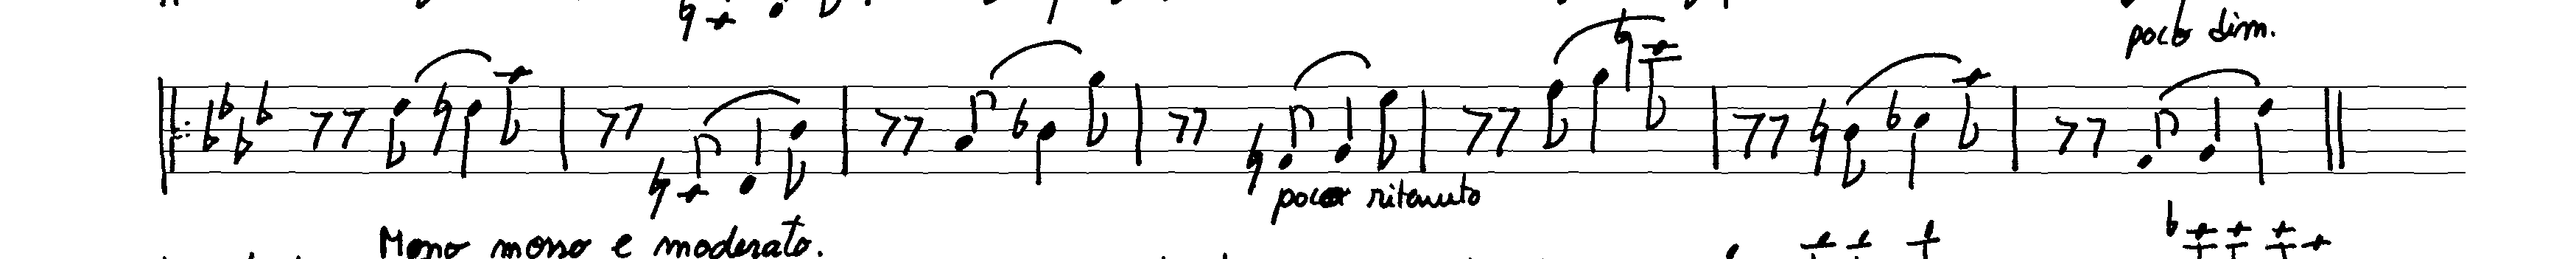 poco dim.
poco ritenuto
Meno mosso e moderato.